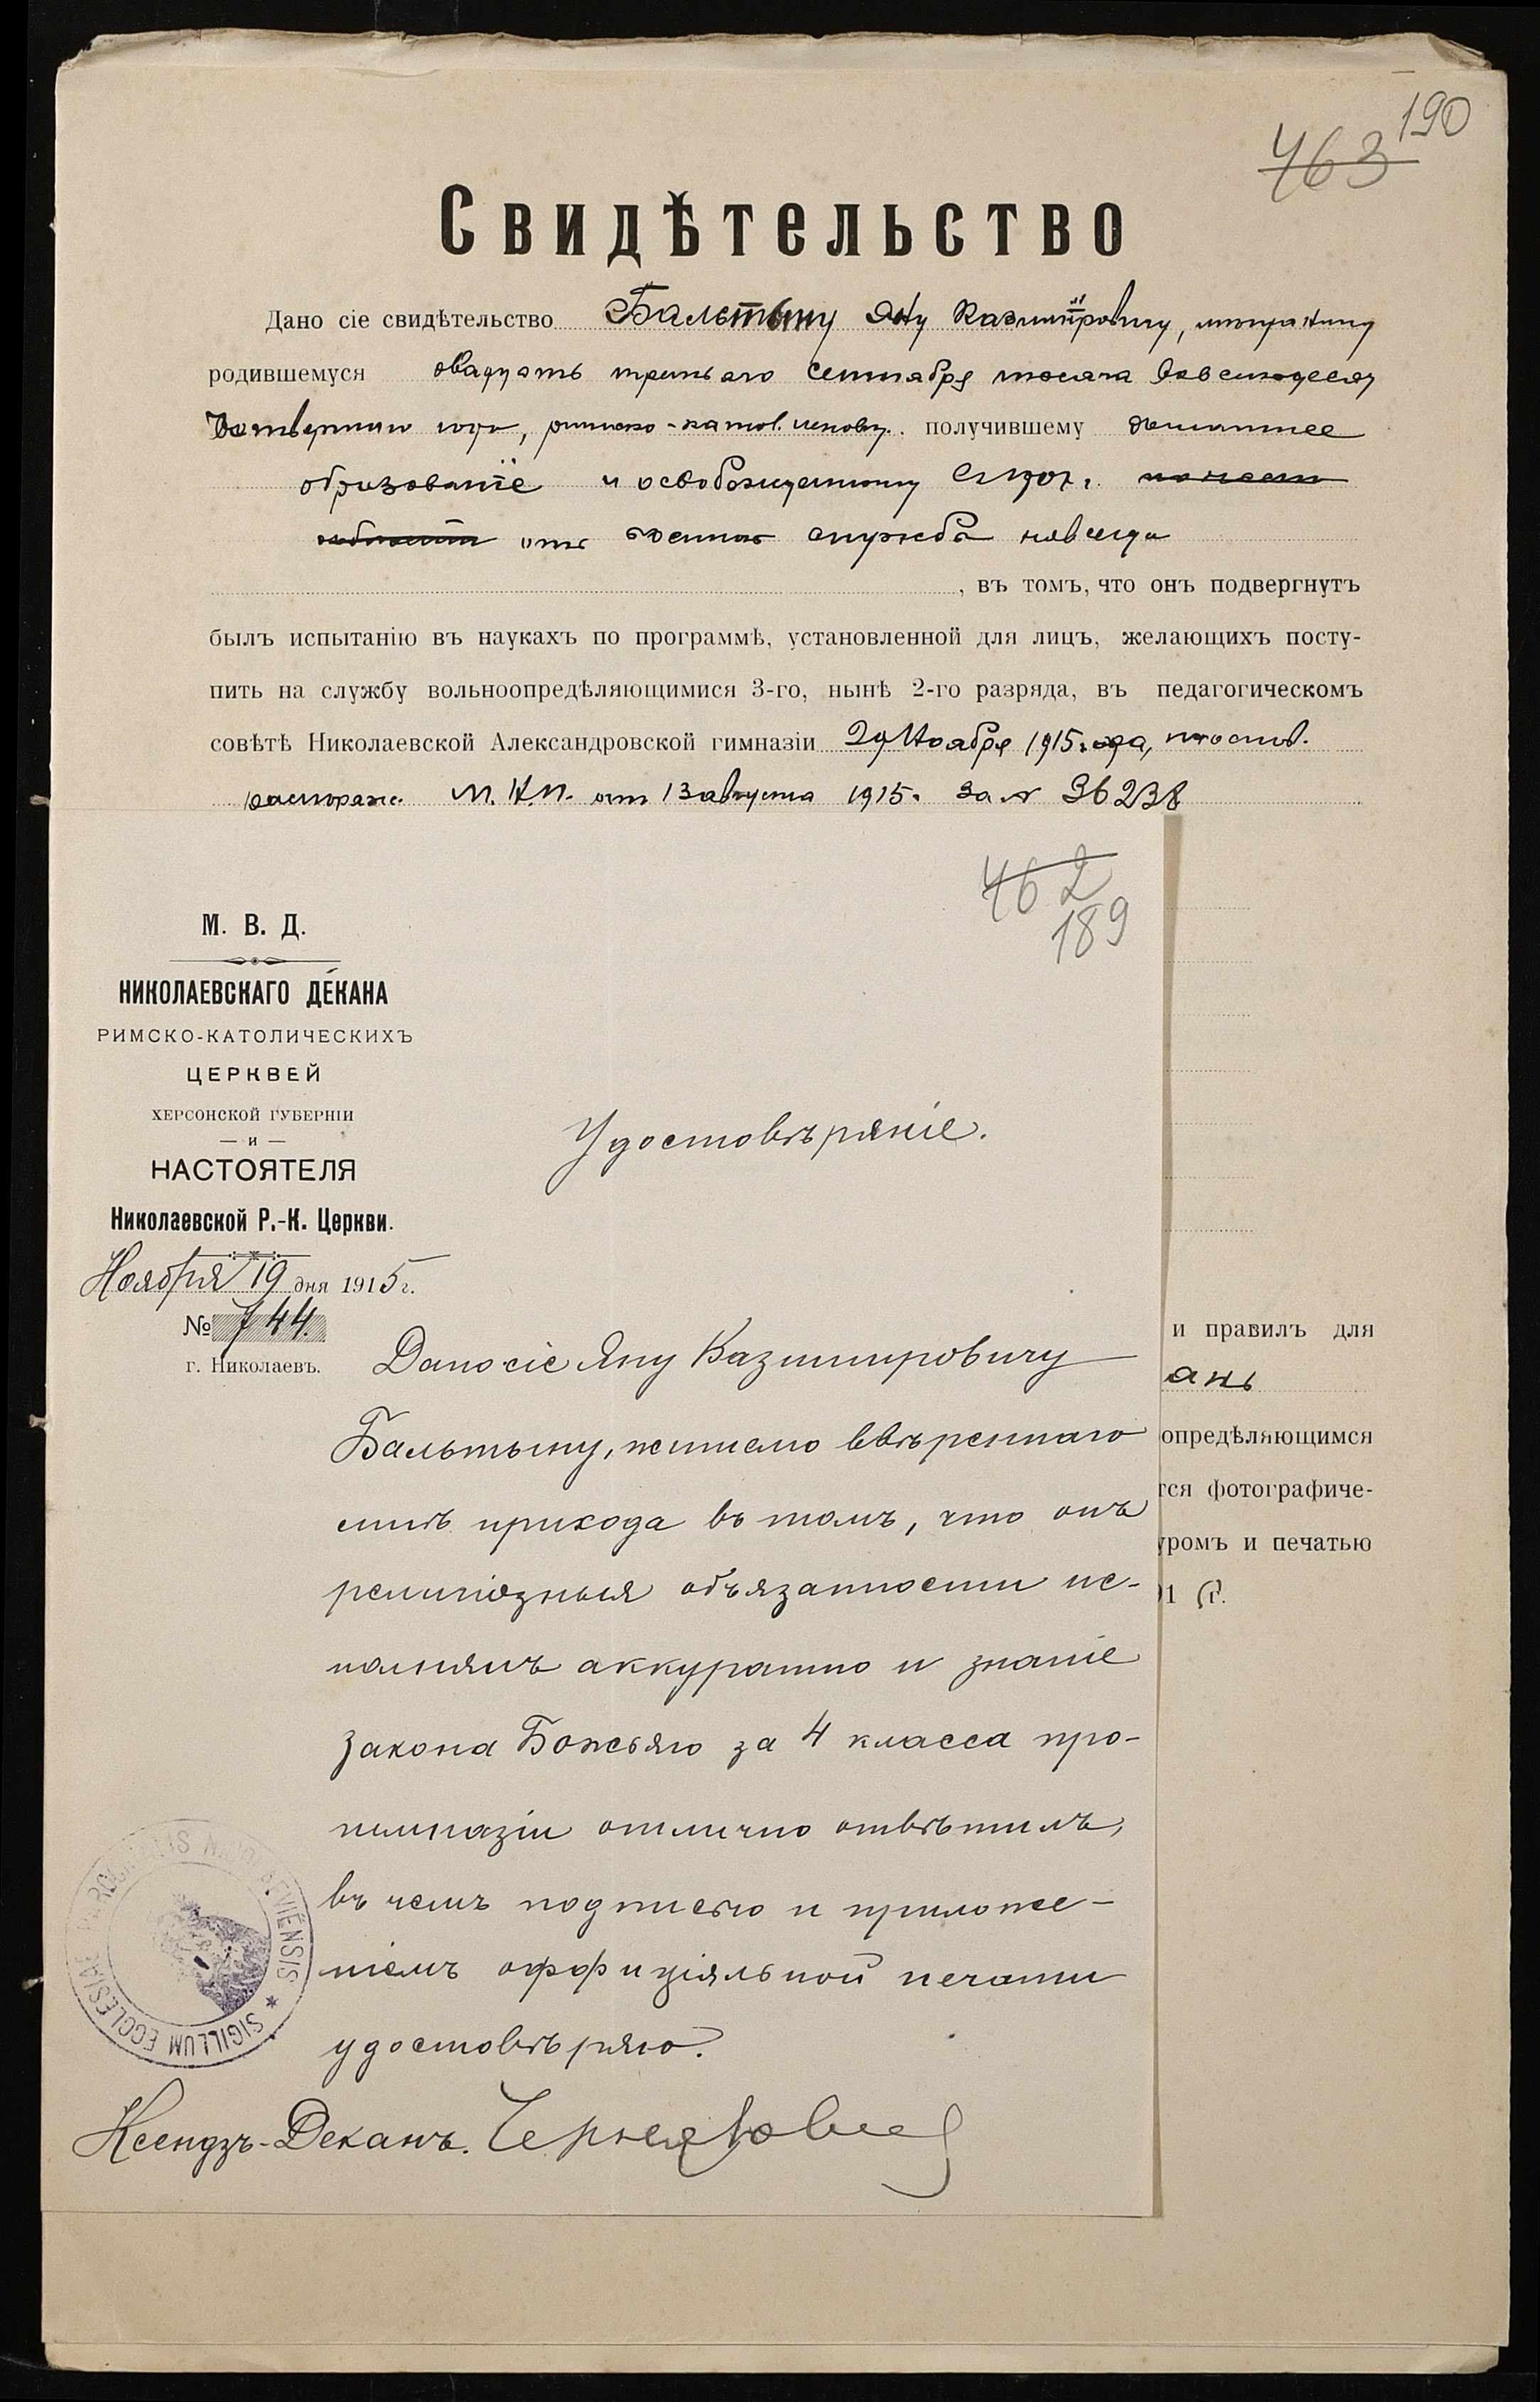 190
463
Свидѣтельство
Дано сіе свидѣтельство Бальтыну Яну Казиміровичу, мѣщанину
родившемуся двадцать третьяго сентября тысяча восемьдесят
четвертаго года, римско-катол. исповѣд. получившему домашнее
образованіе и освобожденному от воинской службы навсегда
, въ томъ, что онъ подвергнутъ
былъ испытанію въ наукахъ по программѣ, установленной для лицъ, желающихъ посту-
пить на службу вольноопредѣляющимися 3-го, нынѣ 2-го разряда, въ педагогическомъ
совѣтѣ Николаевской Александровской гимназіи 29 Ноября 1915 года,
распоряж. М.Н.П. от 13 августа 1915 г. за № 36238
462
189
М. В. Д.
НИКОЛАЕВСКАГО ДЕКАНА
РИМСКО-КАТОЛИЧЕСКИХЪ
ЦЕРКВЕЙ
ХЕРСОНСКОЙ ГУБЕРНІИ
— и —
НАСТОЯТЕЛЯ
Николаевской Р.-К. Церкви.
Ноября 19 дня 1915 г.
№ 744.
г. Николаевъ.
Удостовѣреніе.
Дано сіе Яну Казимировичу
Бальтыну, жителю ввѣреннаго
мнѣ прихода въ томъ, что онъ
религіозныя обязанности ис-
полнялъ аккуратно и знаніе
Закона Божьяго за 4 класса про-
гимназіи отлично отвѣтилъ,
въ чемъ подписью и приложе-
ніемъ оффиціяльной печати
удостовѣряю.
Ксендзъ-Деканъ.
SIGILLUM ECCLESIAE PAROCHIALIS NICOLAEVIENSIS
и правилъ для
ань
опредѣляющимся
тся фотографиче-
уромъ и печатью